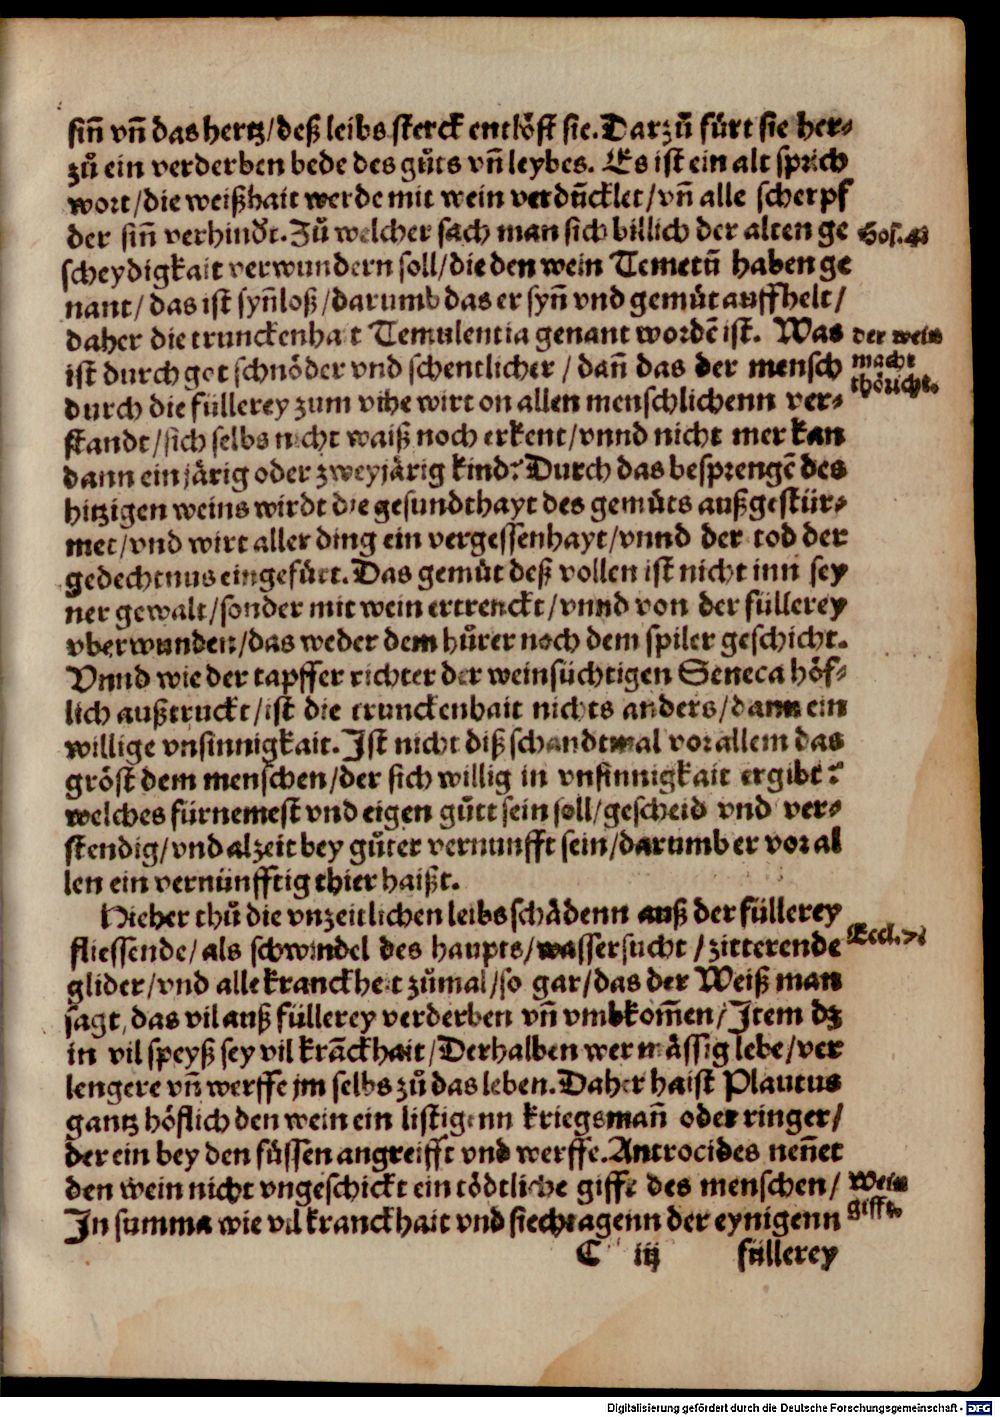 siñ vñ das hertz/deß leibs sterck entlöst sie. Darzů fürt sie her-
zů ein verderben bede des gůts vñ leybes. Es ist ein alt sprich
wort/die weißhait werde mit wein verdũcklet/vñ alle scherpf
der siñ verhindt. Zů welcher sach man sich billich der alten ge
Hos. 4
scheydigkait verwundern soll/die den wein Temetũ haben ge
nant/das ist syñloß/darumb das er syñ vnd gemůt auffhelt/
daher die trunckenhait Temulentia genant wordẽ ist. Was
der wein
ist durch got schnöder vnd schentlicher/dañ das der mensch
macht
durch die füllerey zum vihe wirt on allen menschlichenn ver-
thöricht.
standt/sich selbs nicht waiß noch erkent/vnnd nicht mer kan
dann ein järig oder zweyjärig kind? Durch das besprengẽ des
hitzigen weins wirdt die gesundthayt des gemůts außgestür-
met/vnd wirt aller ding ein vergessenhayt/vnnd der tod der
gedechtnus eingefürt. Das gemůt deß vollen ist nicht inn sey
ner gewalt/sonder mit wein ertrenckt/vnnd von der füllerey
vberwunden/das weder dem hůrer noch dem spiler geschicht.
Vnnd wie der tapffer richter der weinsüchtigen Seneca höf-
lich außtruckt/ist die trunckenhait nichts anders/dann ein
willige vnsinnigkait. Ist nicht diß schandtmal vor allem das
gröst dem menschen/der sich willig in vnsinnigkait ergibt?
welches fürnemest vnd eigen gůtt sein soll/gescheid vnd ver-
stendig/vnd alzeit bey gůter vernunfft sein/darumb er vor al
len ein vernünfftig thier haißt.
Hieher thů die vnzeitlichen leibs schädenn auß der füllerey
fliessende/als schwindel des haupts/wassersucht/zitterende
Eccl. 7
glider/vnd alle kranckheit zůmal/so gar/das der Weiß man
sagt, das vil auß füllerey verderben vñ vmbkom̃en/Item dz
in vil speyß sey vil krãckhait/Derhalben wer mässig lebe/ver
lengere vñ werffe jm selbs zů das leben. Daher haist Plautus
gantz höflich den wein ein listigenn kriegsmañ oder ringer/
der ein bey den füssen angreifft vnd werffe. Antrocides neñet
den wein nicht vngeschickt ein tödtliche gifft des menschen/
Wein
gifft.
In summa wie vil kranckhait vnd siechtagenn der eynigenn
C iij füllerey
Digitalisierung gefördert durch die Deutsche Forschungsgemeinschaft - DFG